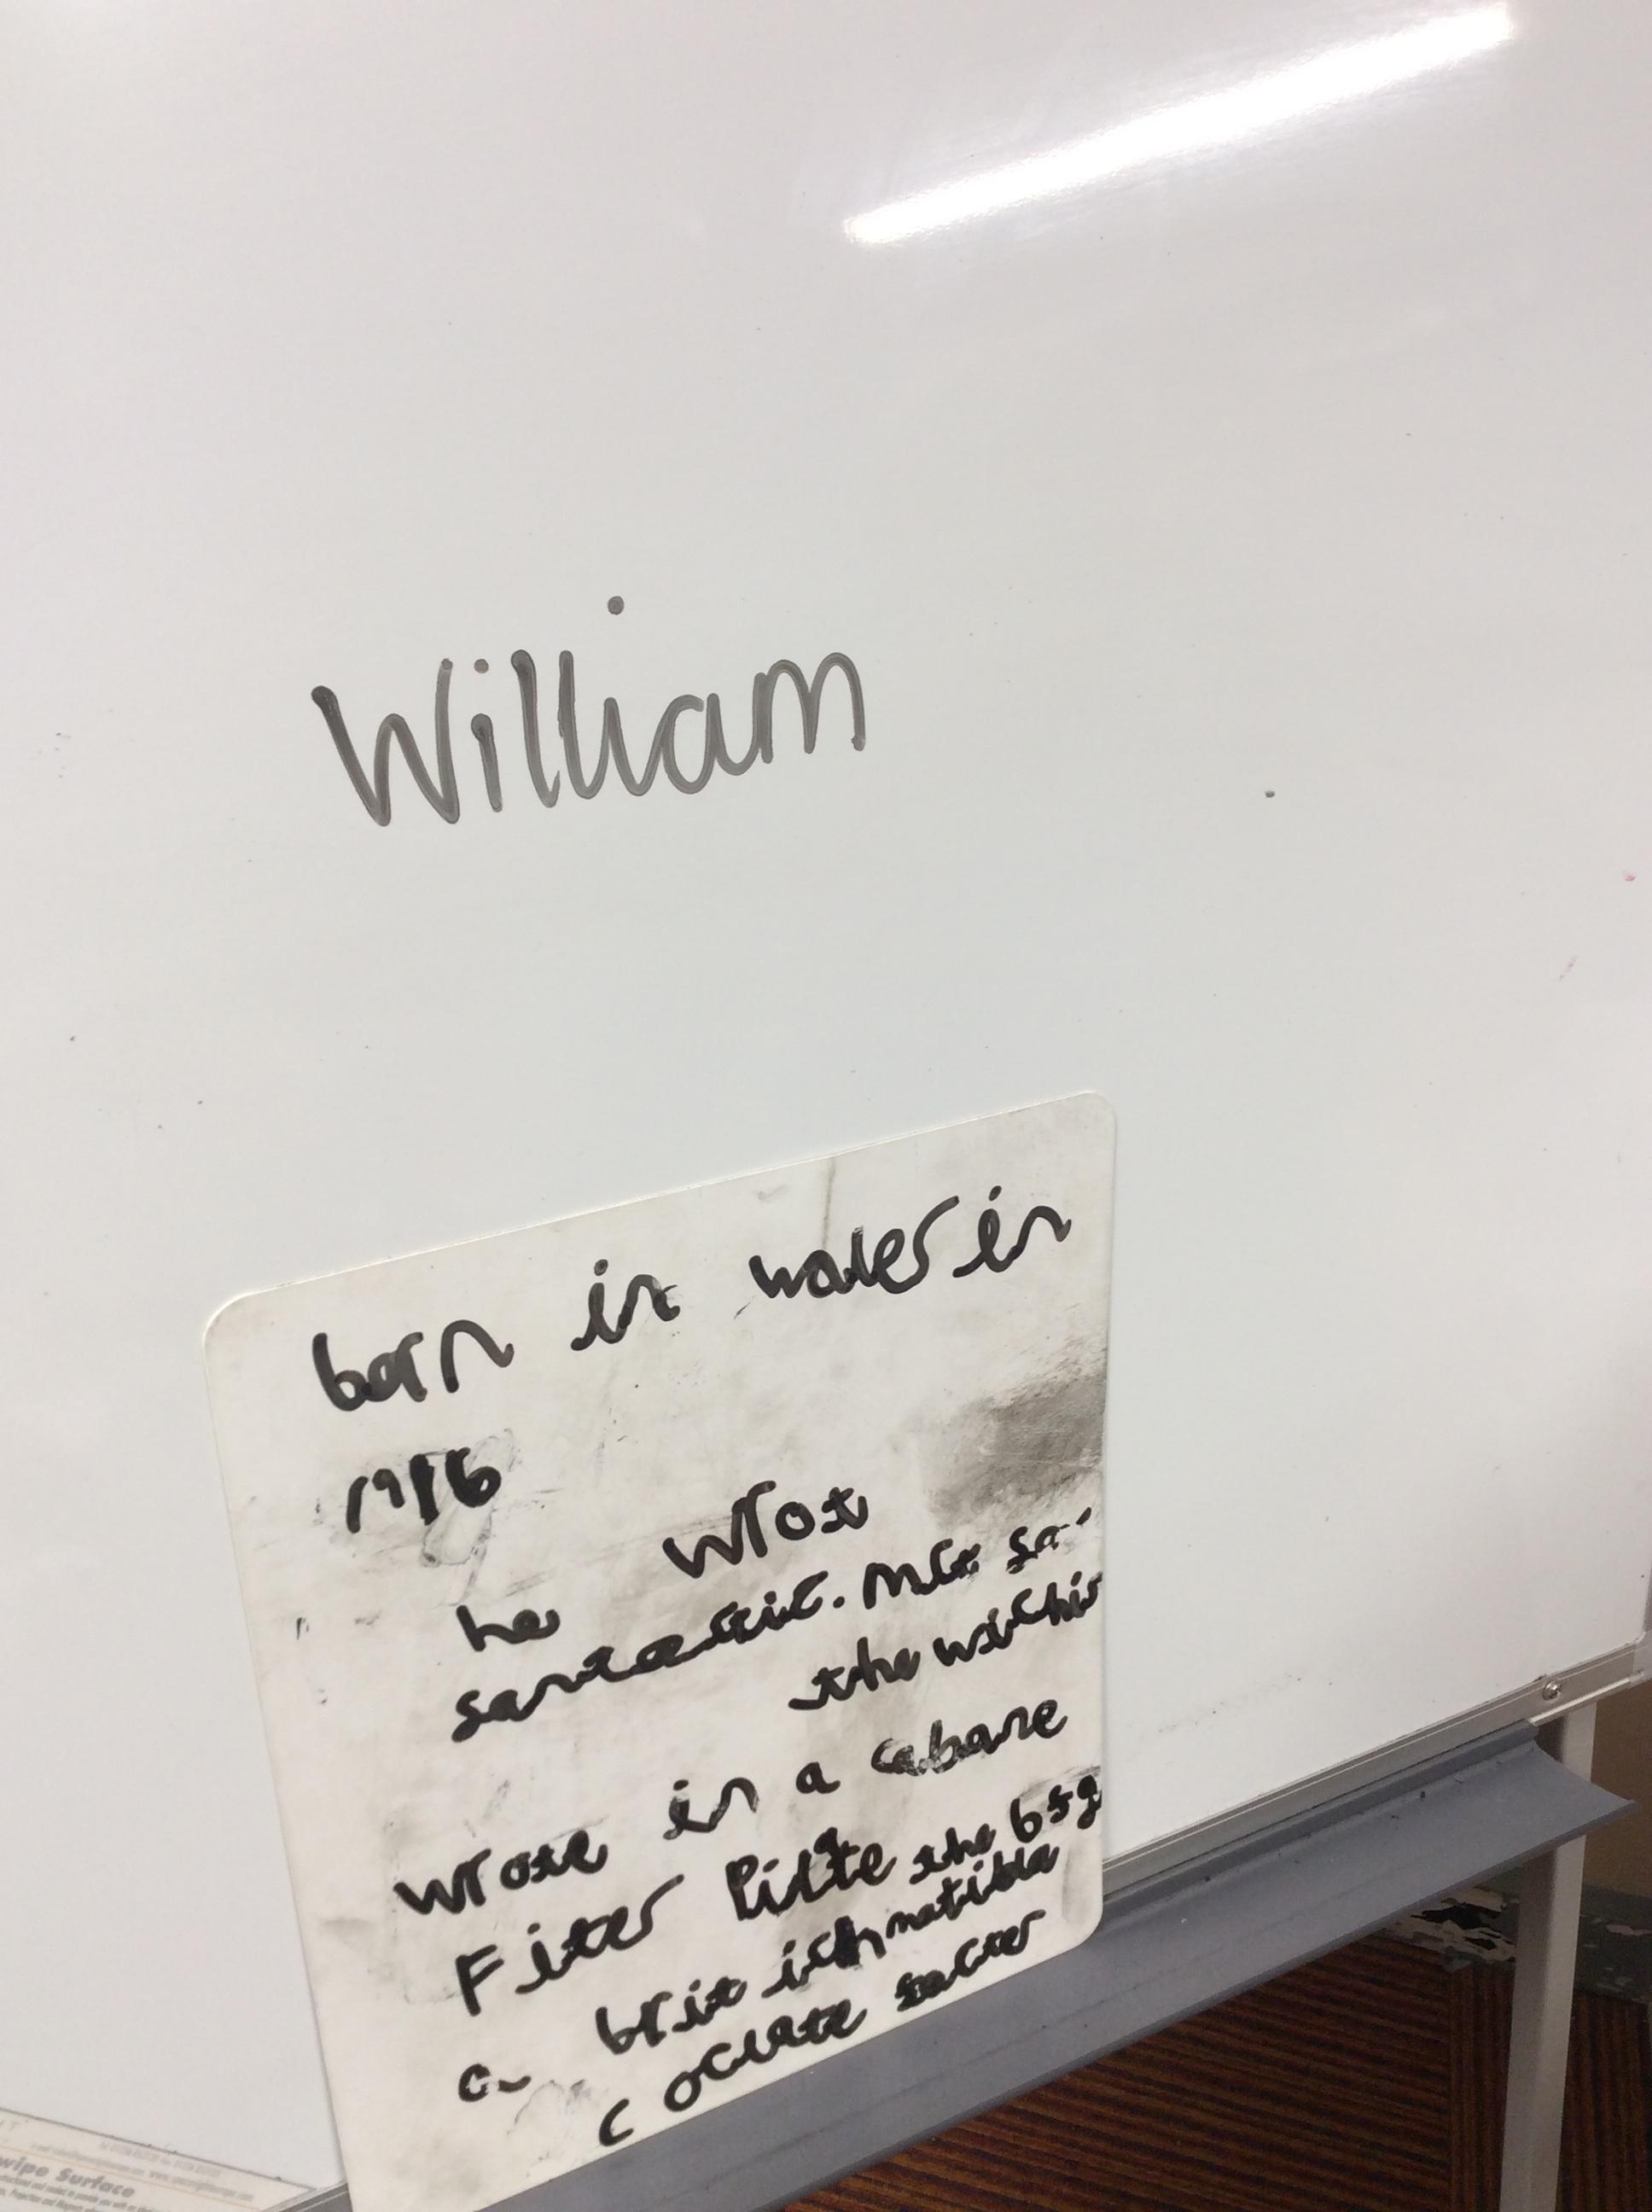 William
born in waler in
1916
he wrox
santastic. Mr sa
the wichis
wrote in a cabane
Fiter Pilate the bfg
a brit ish matilda
C oclate facter
wipe Surface